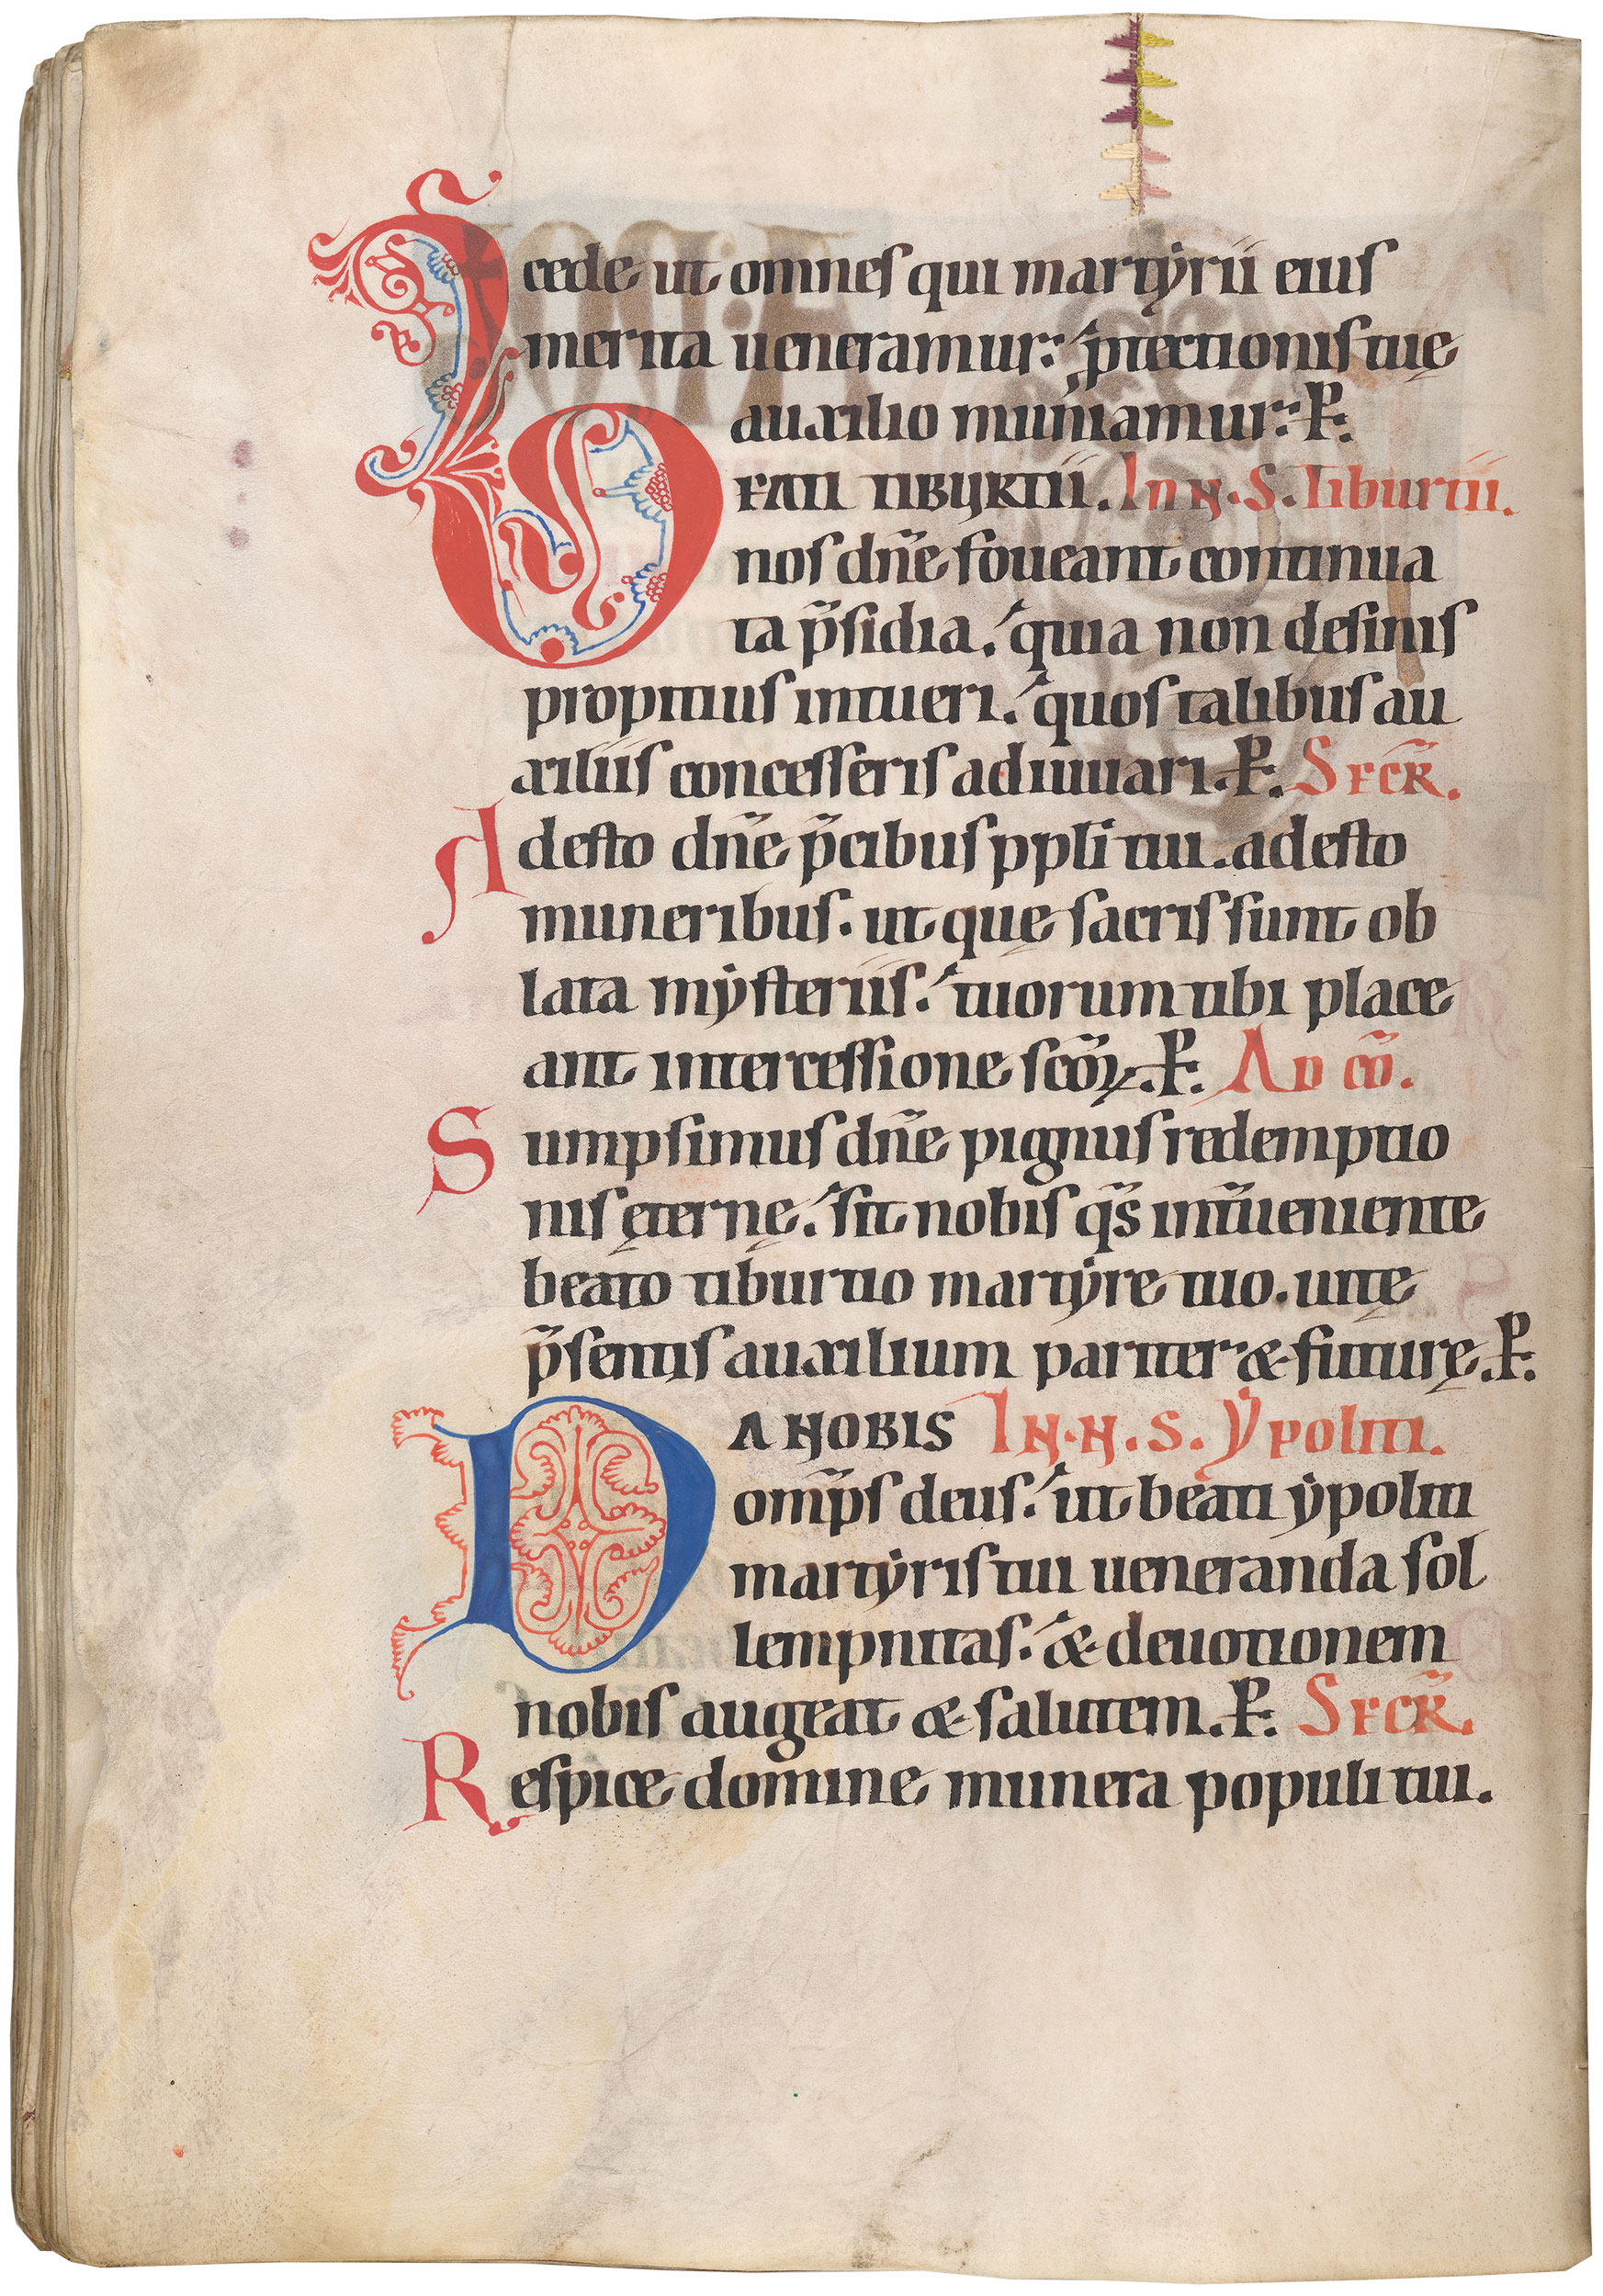 cede ut omnes qui martẏrii eius
merita ueneramur: ꝓtectionis tuę
auxilio muniamur: P̶.
BEATI TIBURTII. IN N. S. Tiburtii.
nos dn̄e foueant continua
ta p̄sidia. quia non desinis
propitius intueri. quos talibus au
xiliis concesseris adiuuari. P̶. SECR̄.
Adesto dn̄e p̄cibus ppli tui. adesto
muneribus. ut quę sacris sunt ob
lata mẏsteriis. tuorum tibi place
ant intercessione sc̄oꝝ. P̶. AD CŌ.
Sumpsimus dn̄e pignus redemptio
nis ęternę. sit nobis qs̄ int̄ueniente
beato tiburtio martẏre tuo. uitę
p̄sentis auxilium pariter & futurę. P̶.
DA NOBIS IN. N. S. Ẏpoliti.
omp̄s deus. ut beati ẏpoliti
martẏris tui ueneranda sol
lempnitas. & deuotionem
nobis augeat & salutem. P̶. SECR̄.
Respice domine munera populi tui.